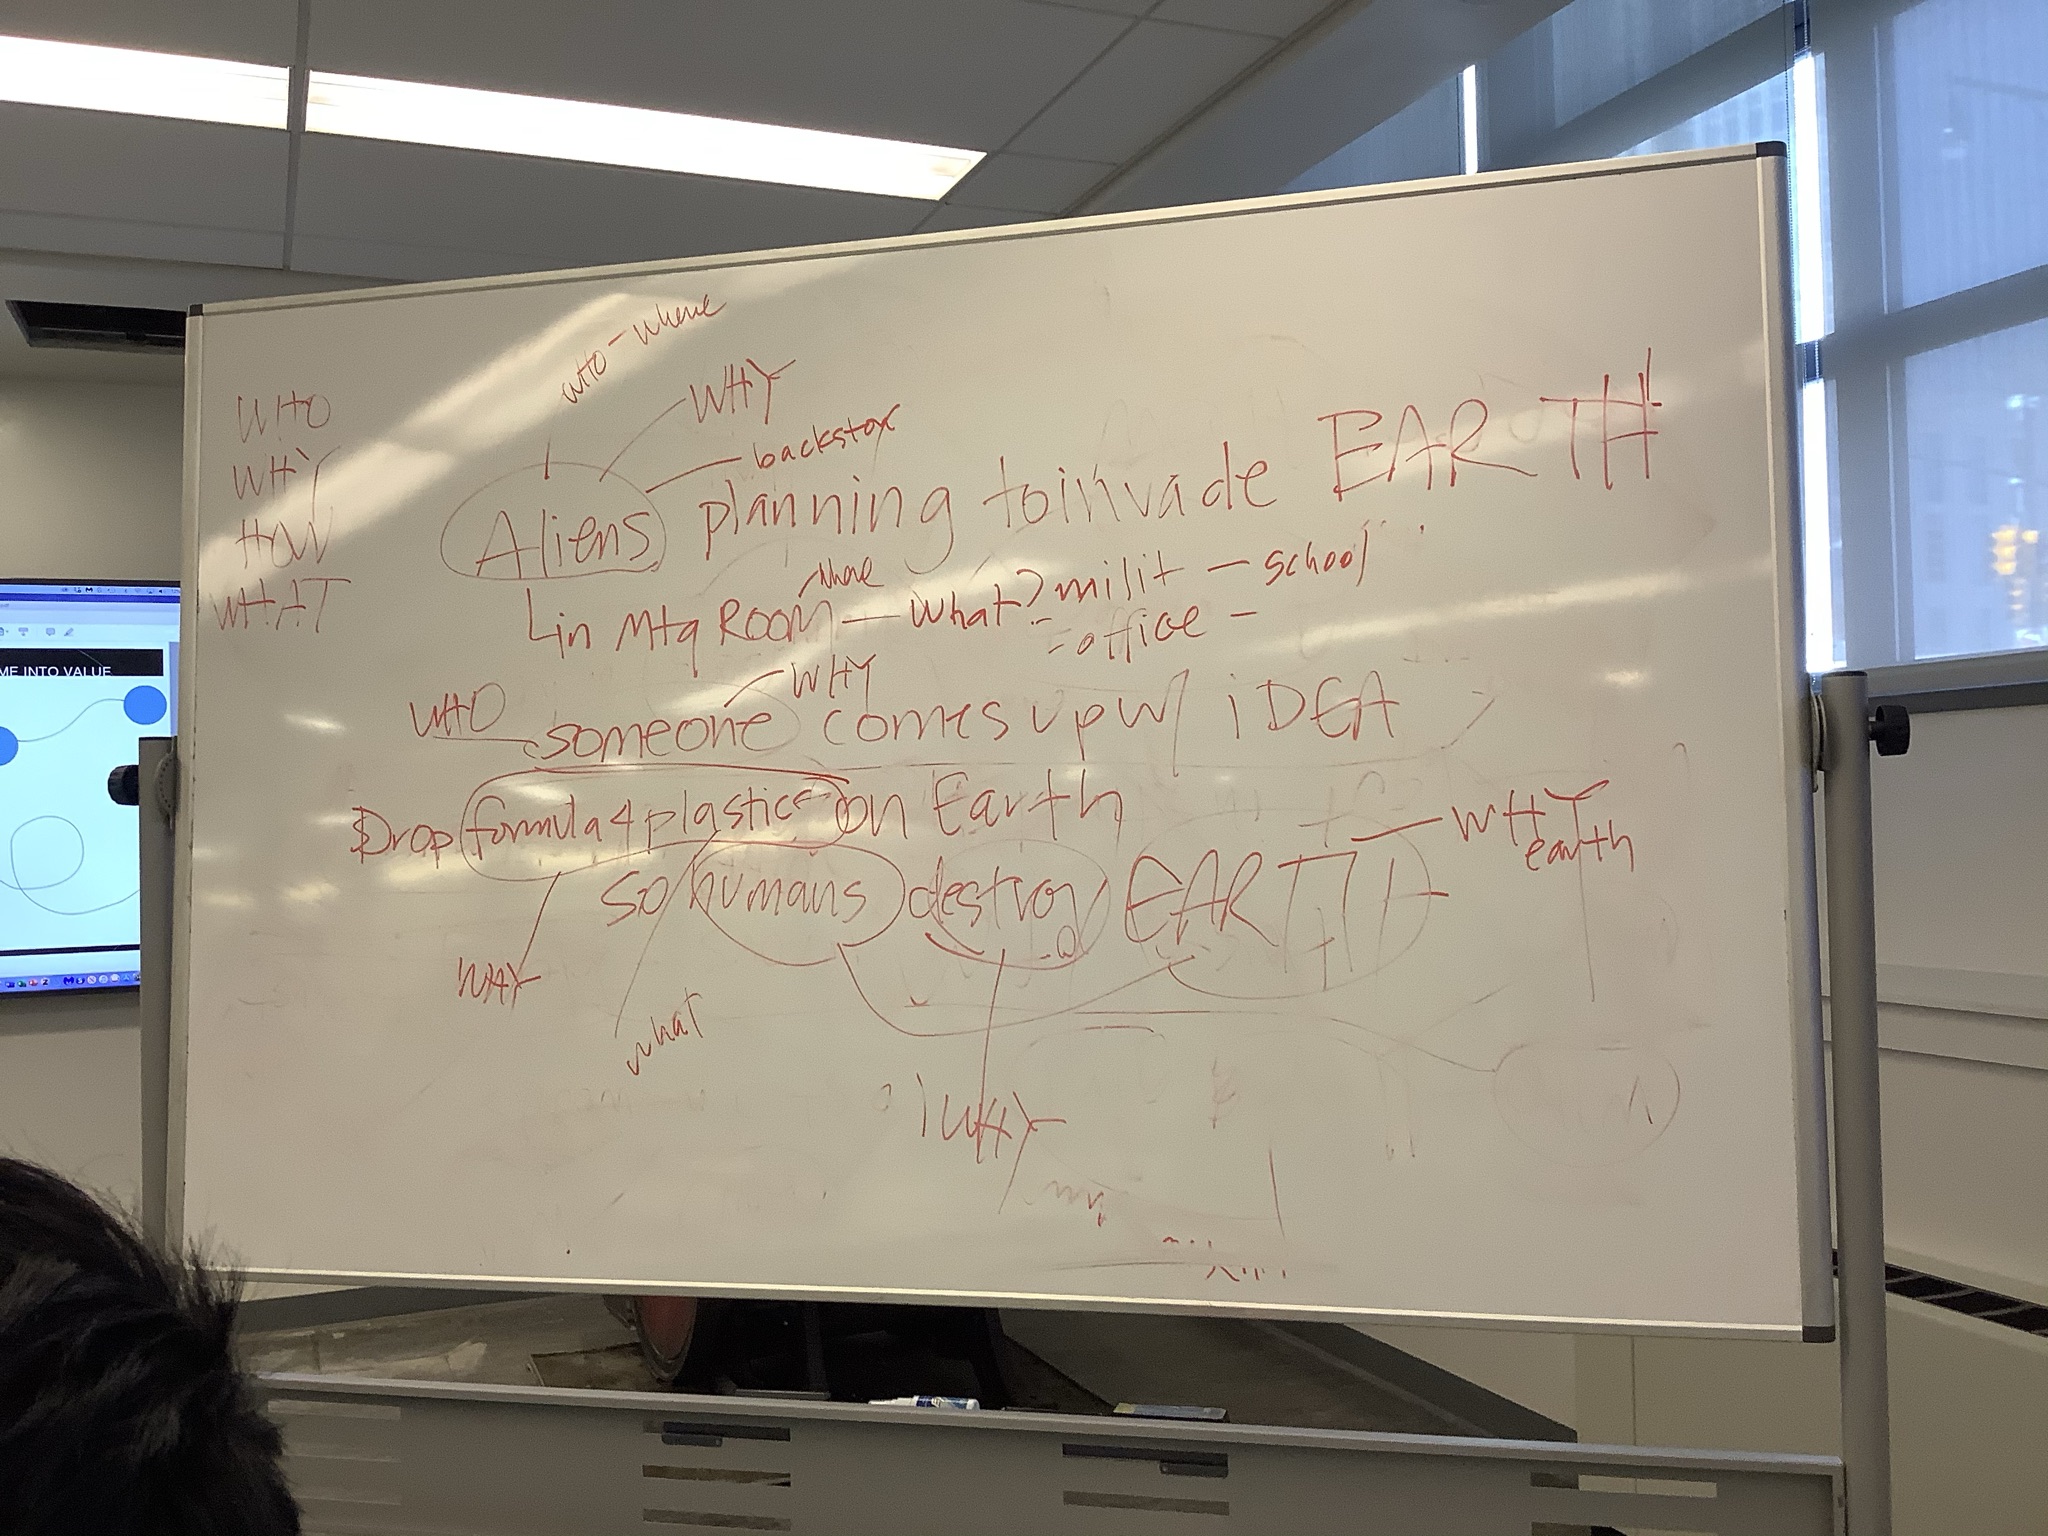 WHO - where
WHO
WHY
HOW
WHAT
WHY
backstor
Aliens planning to invade EARTH
in Mtg ROOM — what? milit — school
= office —
WHO
WHY
someone comes up w/ iDEA
Drop formula 4 plastics on Earth
WHY
earth
so humans destroy EARTH
WAY
what
WHY
ME INTO VALUE